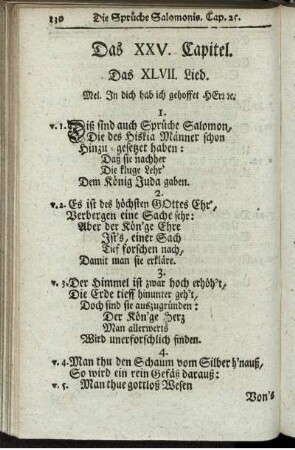 130 Die Sprüche Salomonis. Cap. 25.
Das XXV. Capitel.
Das XLVII. Lied.
Mel. In dich hab ich gehoffet HErr ꝛc.
1.
v. 1. Diß sind auch Sprüche Salomon,
Die des Hiskia Männer schon
Hinzu gesetzet haben:
Daß sie nachher
Die kluge Lehr'
Dem König Juda gaben.
2.
v. 2. Es ist des höchsten GOttes Ehr',
Verbergen eine Sache sehr:
Aber der Kön'ge Ehre
Ist's, einer Sach
Tief forschen nach,
Damit man sie erkläre.
3.
v. 3. Der Himmel ist zwar hoch erhöh't,
Die Erde tieff hinunter geh't,
Doch sind sie auszugründen:
Der Kön'ge Herz
Man allerwerts
Wird unerforschlich finden.
4.
v. 4. Man thu den Schaum vom Silber h'nauß,
So wird ein rein Gefäß darauß:
v. 5. Man thue gottloß Wesen
Von's